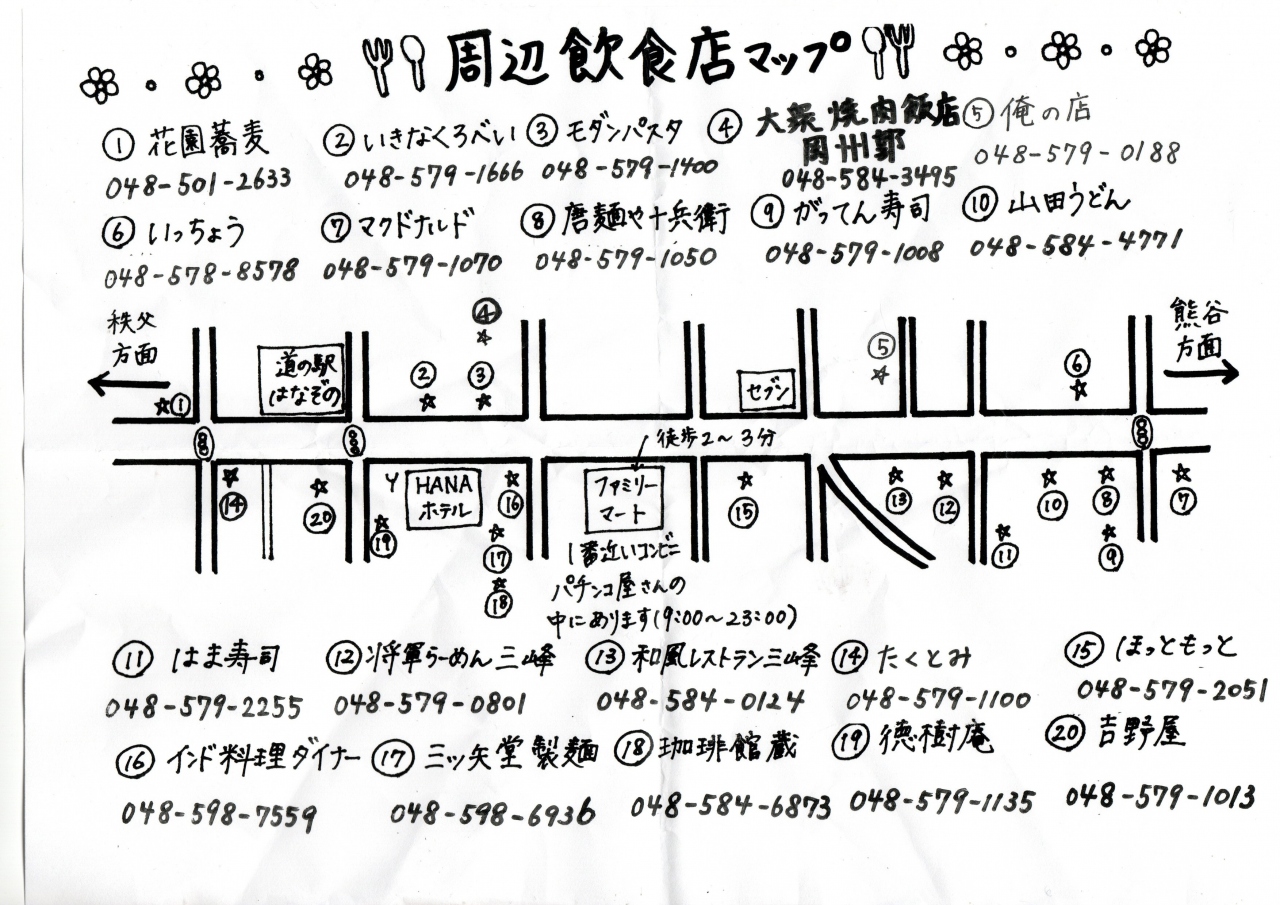 周辺飲食店マップ
① 花園蕎麦
048-501-2633
② いきなくろべい
048-579-1666
③ モダンパスタ
048-579-1400
④ 大衆焼肉飯店
岡州郭
048-584-3495
⑤ 俺の店
048-579-0188
⑥ いっちょう
048-578-8578
⑦ マクドナルド
048-579-1070
⑧ 唐麺や十兵衛
048-579-1050
⑨ がってん寿司
048-579-1008
⑩ 山田うどん
048-584-4771
秩父
方面
熊谷
方面
道の駅
はなぞの
④
②
③
⑤
⑥
セブン
①
徒歩2～3分
⑭
⑳
⑲
Y
HANA
ホテル
⑯
⑰
⑱
ファミリー
マート
⑮
⑬
⑫
⑪
⑩
⑧
⑨
⑦
1番近いコンビニ
パチンコ屋さんの
中にあります(9:00～23:00)
⑪ はま寿司
048-579-2255
⑫ 将軍らーめん三峰
048-579-0801
⑬ 和風レストラン三峰
048-584-0124
⑭ たくとみ
048-579-1100
⑮ ほっともっと
048-579-2051
⑯ インド料理ダイナー
048-598-7559
⑰ 三ツ矢堂製麺
048-598-6936
⑱ 珈琲館蔵
048-584-6873
⑲ 徳樹庵
048-579-1135
⑳ 吉野屋
048-579-1013